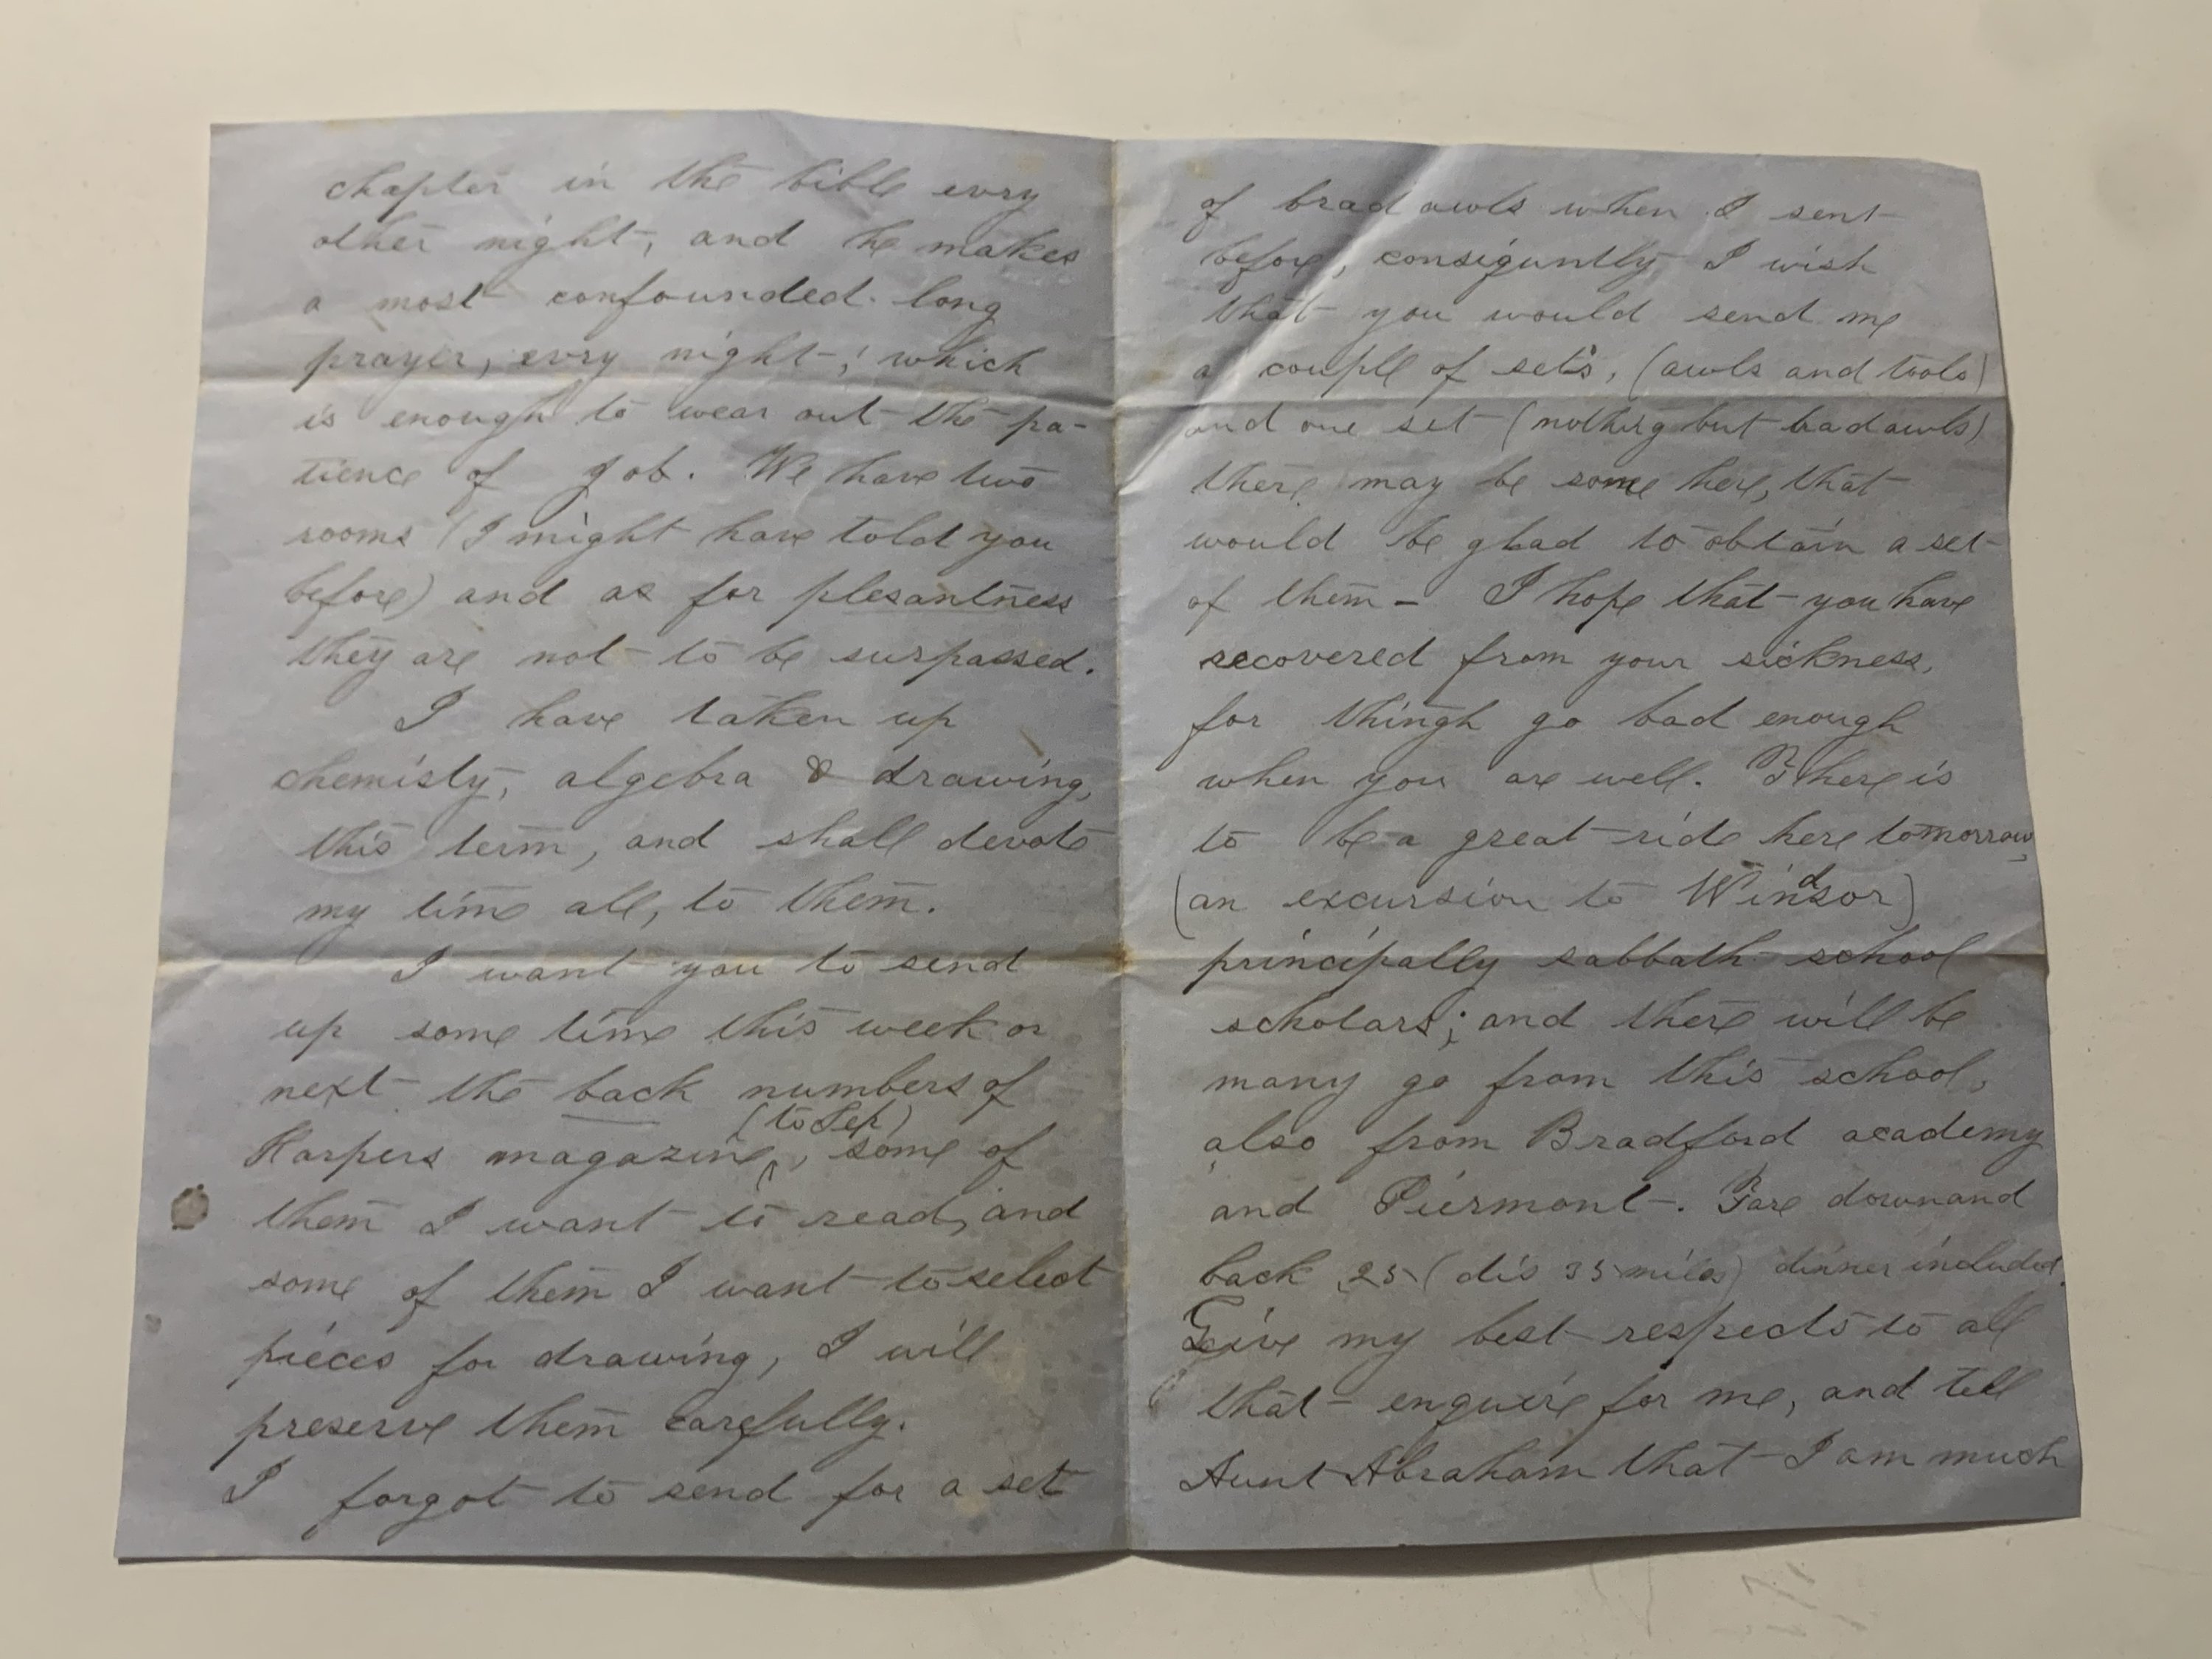 chapter in the bible evry
other night, and he makes
a most confounded long
prayer, evry night; which
is enough to wear out the pa-
tience of Job. We have two
rooms (I might have told you
before) and as for plesantness
they are not to be surpassed.
I have taken up
chemisty, algebra & drawing,
this term, and shall devote
my time all, to them.
I want you to send
up some time this week or
next the back numbers of
(to Sep)
Harpers magazine, some of
them I want to read, and
some of them I want to select
pieces for drawing, I will
preserve them carefully.
I forgot to send for a set
of brad awls when I sent
before, consiquntly I wish
that you would send me
a couple of sets, (awls and tools)
and one set (nothing but bad awls)
there may be some here, that
would be glad to obtain a set
of them - I hope that you have
recovered from your sickness,
for thingh go bad enough
when you are well. There is
to be a great ride here tomorrow,
(an excursion to Windsor)
principally sabbath school
scholars; and there will be
many go from this school,
also from Bradford academy
and Piermont. Fare down and
back 25 (dis 35 miles) dinner included.
Give my best respects to all
that enquire for me, and tell
Aunt Abraham that I am much